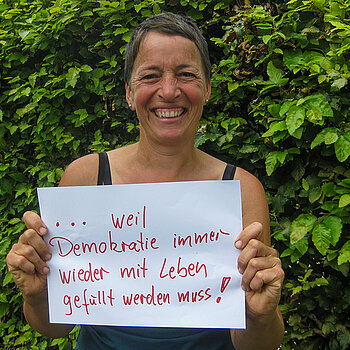 ... weil
Demokratie immer
wieder mit Leben
gefüllt werden muss!